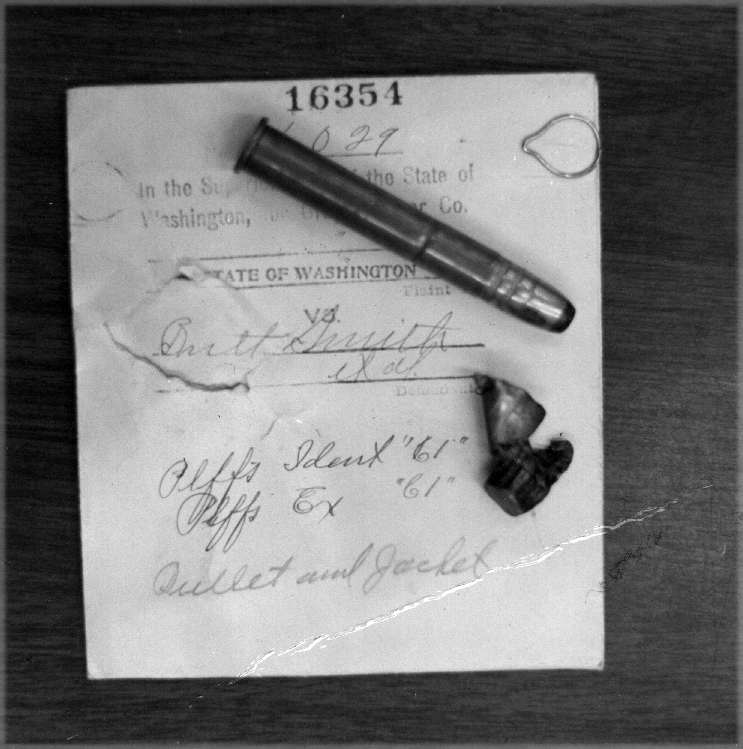 16354
029
In the Superior the State of
Washington, Co.
STATE OF WASHINGTON
Plaint
VS.
Britt Smith
et al.
Defendant
Plffs Ident "61"
Plffs Ex "61"
Bullet and Jacket